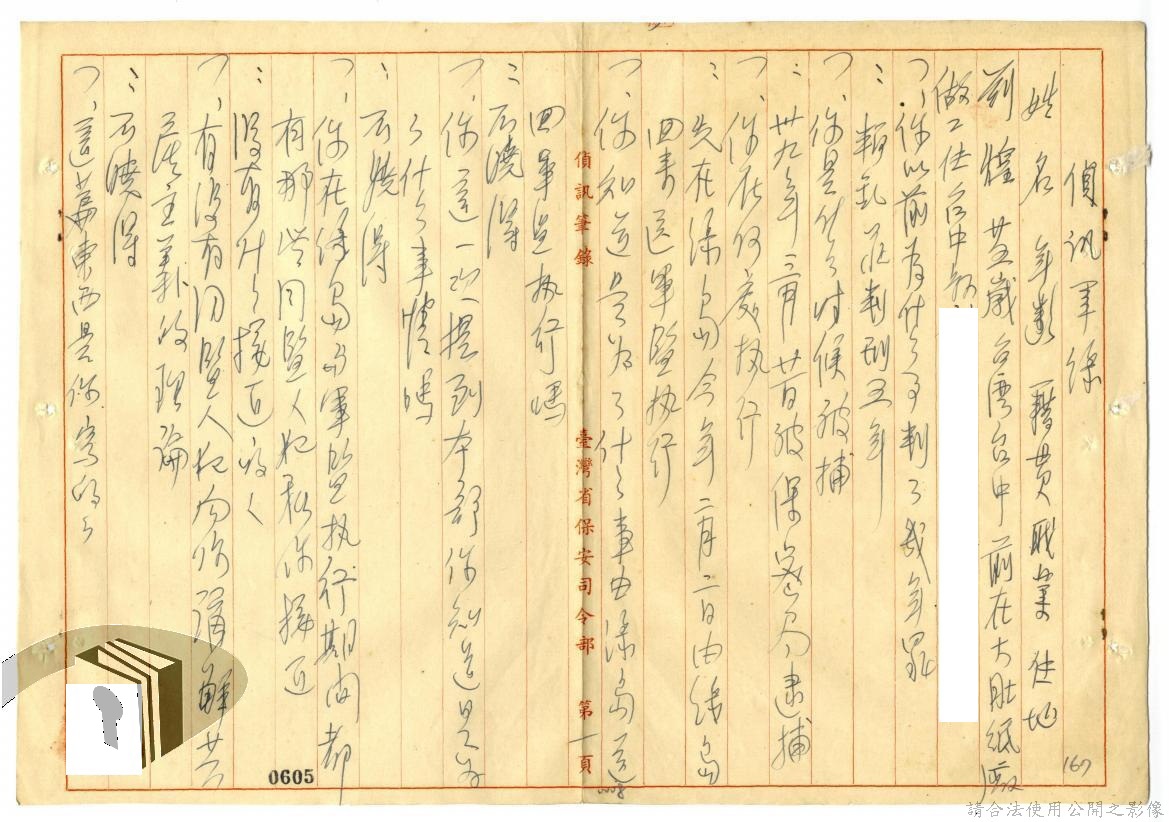 偵訊筆錄
姓名 年齡 籍貫 職業 住地
劉煌 五歲 台灣台中 前在大肚紙廠
做工住台中
問、你以前為什么事判了幾年罪
：叛亂罪判刑五年
問、你是什么時候被捕
：卅九年三月廿日被保密局逮捕
問、你在何處执行
：先在綠島今年二月二日由綠島
回來這軍監执行
問、你知道是為了什么事由綠島送
回軍監执行嗎
：不曉得
問、你這一次提到本部你知道是為
了什么事情嗎
：不曉得
問、你在綠島与軍監执行期间都
有那些同監人犯和你接近
：沒有什么接近的人
問、有沒有同監人犯向你講解共
產主義的理論
：不曉得
問、這篇東西是你寫的么
偵訊筆錄 臺灣省保安司令部 第一頁
0605
167
請合法使用公開之影像